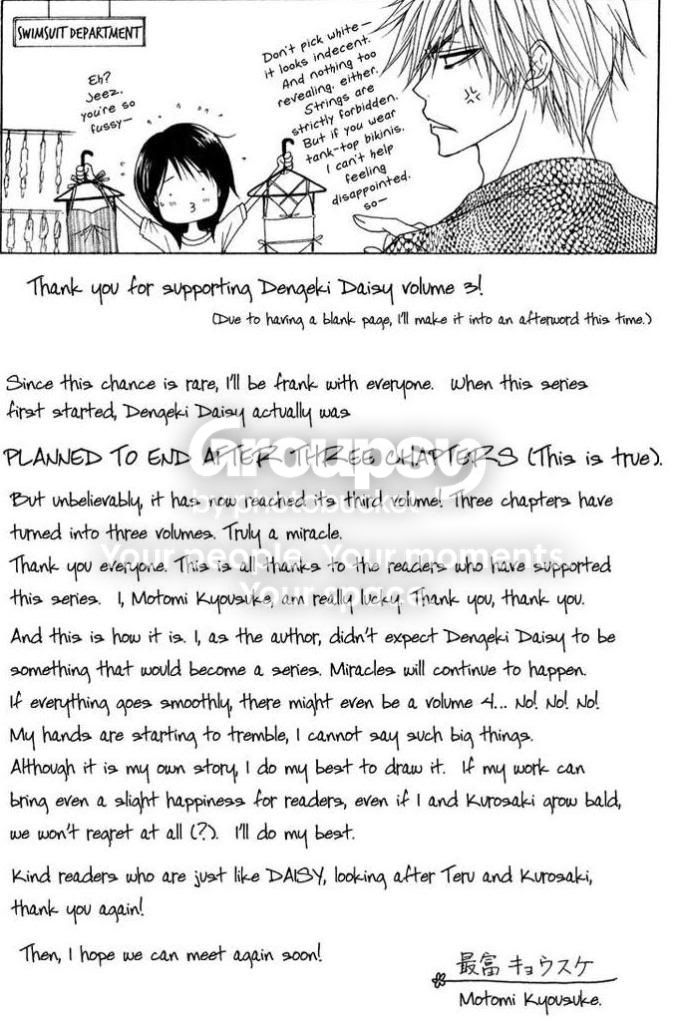 SWIMSUIT DEPARTMENT
Eh?
Jeez.
you're so
fussy—
Don't pick white—
it looks indecent.
And nothing too
revealing. either.
Strings are
strictly forbidden.
But if you wear
tank-top bikinis.
I can't help
feeling
disappointed.
so—
Thank you for supporting Dengeki Daisy volume 3!
(Due to having a blank page, I'll make it into an afterword this time.)
Since this chance is rare, I'll be frank with everyone. When this series
first started, Dengeki Daisy actually was
PLANNED TO END AFTER THREE CHAPTERS (This is true).
But unbelievably, it has now reached its third volume! Three chapters have
turned into three volumes. Truly a miracle.
Thank you everyone. This is all thanks to the readers who have supported
this series. I, Motomi Kyousuke, am really lucky. Thank you, thank you.
And this is how it is. I, as the author, didn't expect Dengeki Daisy to be
something that would become a series. Miracles will continue to happen.
If everything goes smoothly, there might even be a volume 4... No! No! No!
My hands are starting to tremble, I cannot say such big things.
Although it is my own story, I do my best to draw it. If my work can
bring even a slight happiness for readers, even if I and Kurosaki grow bald,
we won't regret at all (?). I'll do my best.
Kind readers who are just like DAISY, looking after Teru and Kurosaki,
thank you again!
Then, I hope we can meet again soon!
最富 キョウスケ
Motomi Kyousuke.
Groupsy
by photobucket
Your people. Your moments.
Your space.